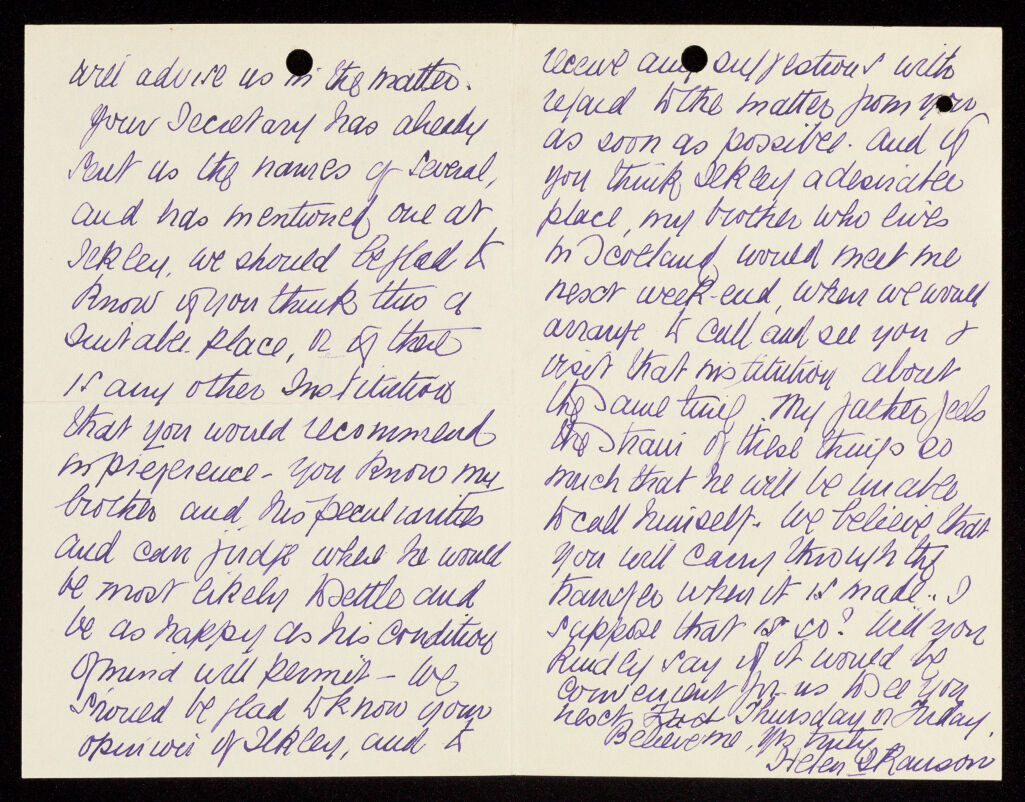 will advise us in the matter.
Your Secretary has already
sent us the names of several,
and has mentioned one at
Ilkley, we should be glad to
know if you think this a
suitable place, or if there
is any other Institution
that you would recommend
in preference - you know my
brother and his peculiarities
and can judge where he would
be most likely to settle and
be as happy as his condition
of mind will permit - We
should be glad to know your
opinion of Ilkley, and to
receive any suggestions with
regard to the matter from you
as soon as possible. And if
you think Ilkley a desirable
place, my brother who lives
in Scotland would meet me
next week-end, when we would
arrange to call and see you &
visit that institution about
the same time. My father feels
the strain of these things so
much that he will be unable
to call himself. We believe that
you will carry through the
transfer when it is made. I
suppose that is so? Will you
kindly say if it would be
convenient for us to see you
next Thursday or Friday.
Believe me, yrs truly
Helen Ranson